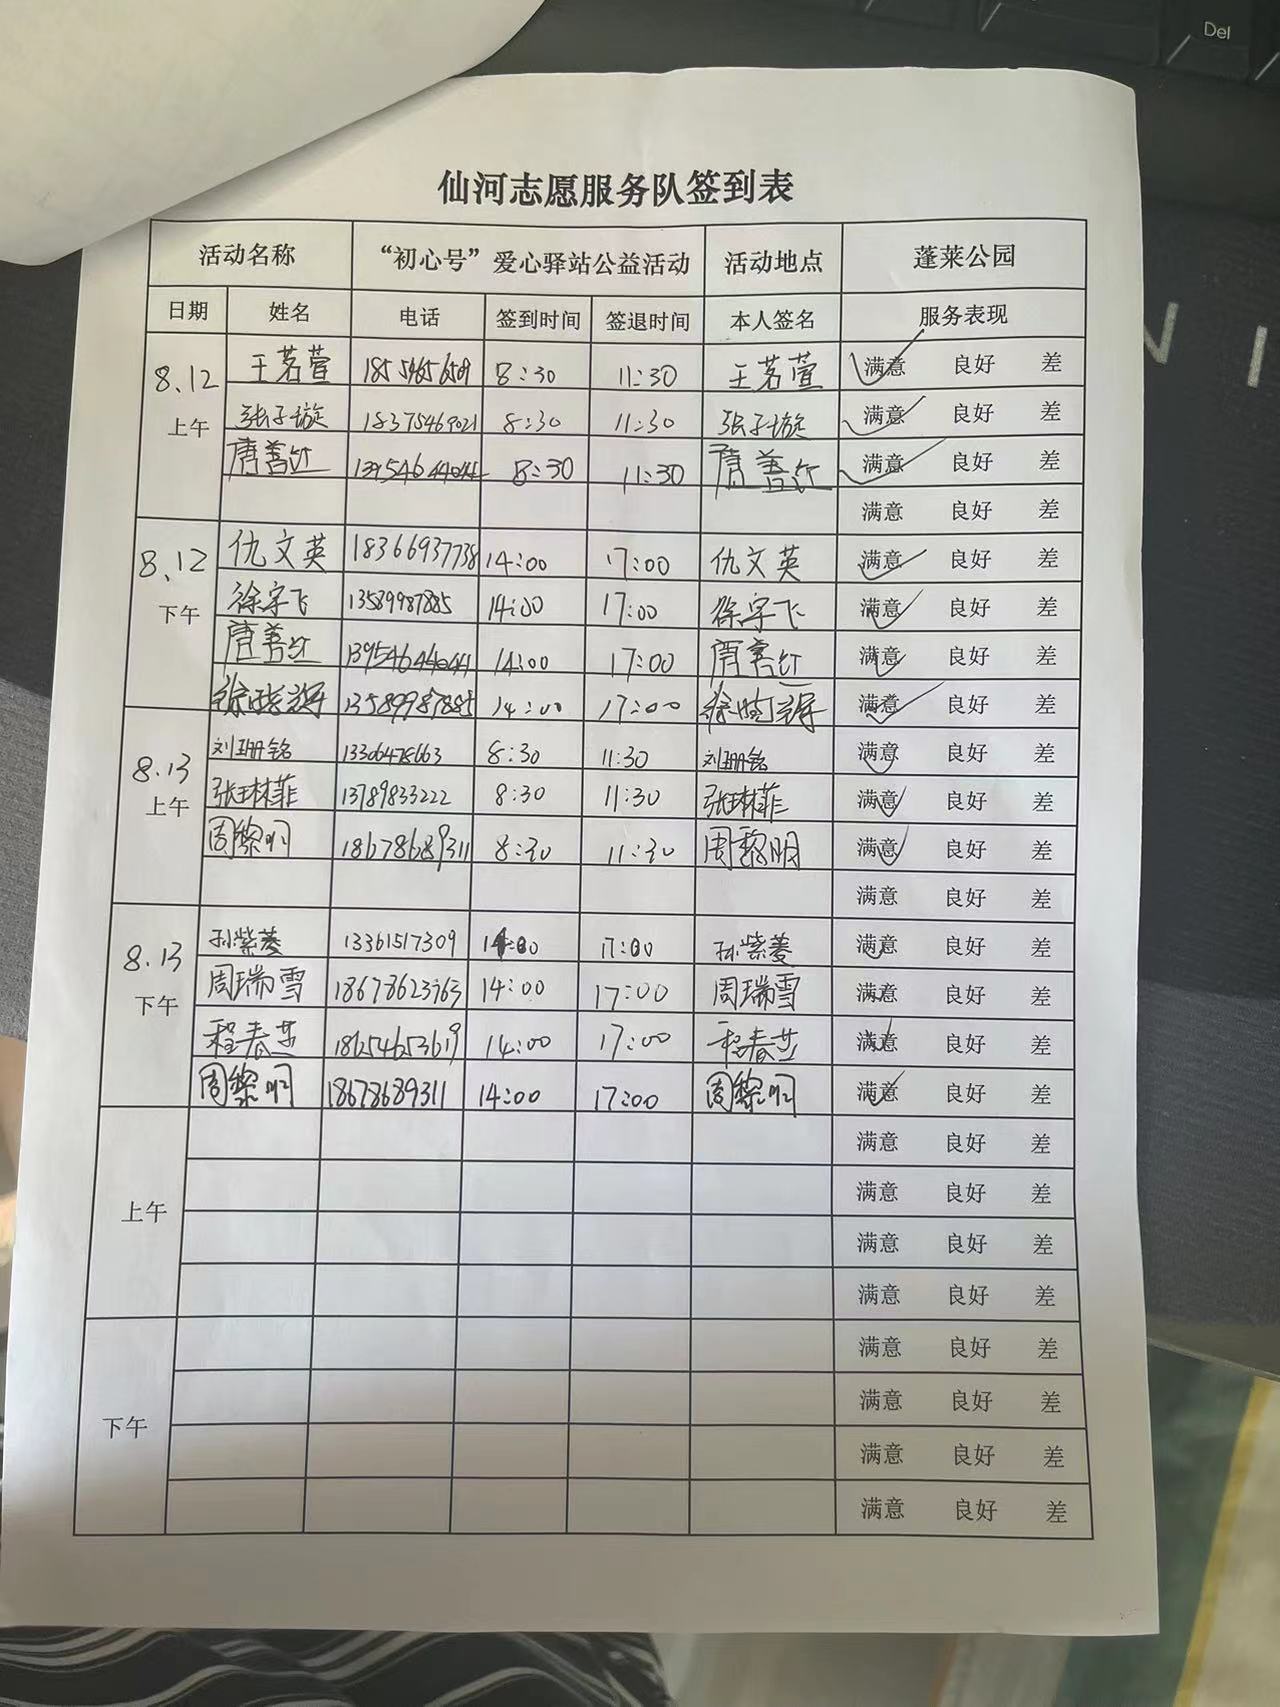 Del
仙河志愿服务队签到表
活动名称 “初心号”爱心驿站公益活动 活动地点 蓬莱公园
日期 姓名 电话 签到时间 签退时间 本人签名 服务表现
8.12 上午 王茗萱 8:30 11:30 王茗萱 满意 良好 差
张子璇 18375469021 8:30 11:30 张子璇 满意 良好 差
唐善红 8:30 11:30 唐善红 满意 良好 差
满意 良好 差
8.12 下午 仇文英 18366937738 14:00 17:00 仇文英 满意 良好 差
徐宇飞 13589987885 14:00 17:00 徐宇飞 满意 良好 差
唐善红 13954644044 14:00 17:00 唐善红 满意 良好 差
13589987885 14:00 17:00 满意 良好 差
8.13 上午 刘珊铭 13306478663 8:30 11:30 刘珊铭 满意 良好 差
张琳菲 13789833222 8:30 11:30 张琳菲 满意 良好 差
周黎明 18678689311 8:30 11:30 周黎明 满意 良好 差
满意 良好 差
8.13 下午 孙紫菱 13361517309 14:00 17:00 孙紫菱 满意 良好 差
周瑞雪 18678623763 14:00 17:00 周瑞雪 满意 良好 差
程春莎 18654653619 14:00 17:00 程春莎 满意 良好 差
周黎明 18678689311 14:00 17:00 周黎明 满意 良好 差
上午 满意 良好 差
满意 良好 差
满意 良好 差
满意 良好 差
下午 满意 良好 差
满意 良好 差
满意 良好 差
满意 良好 差